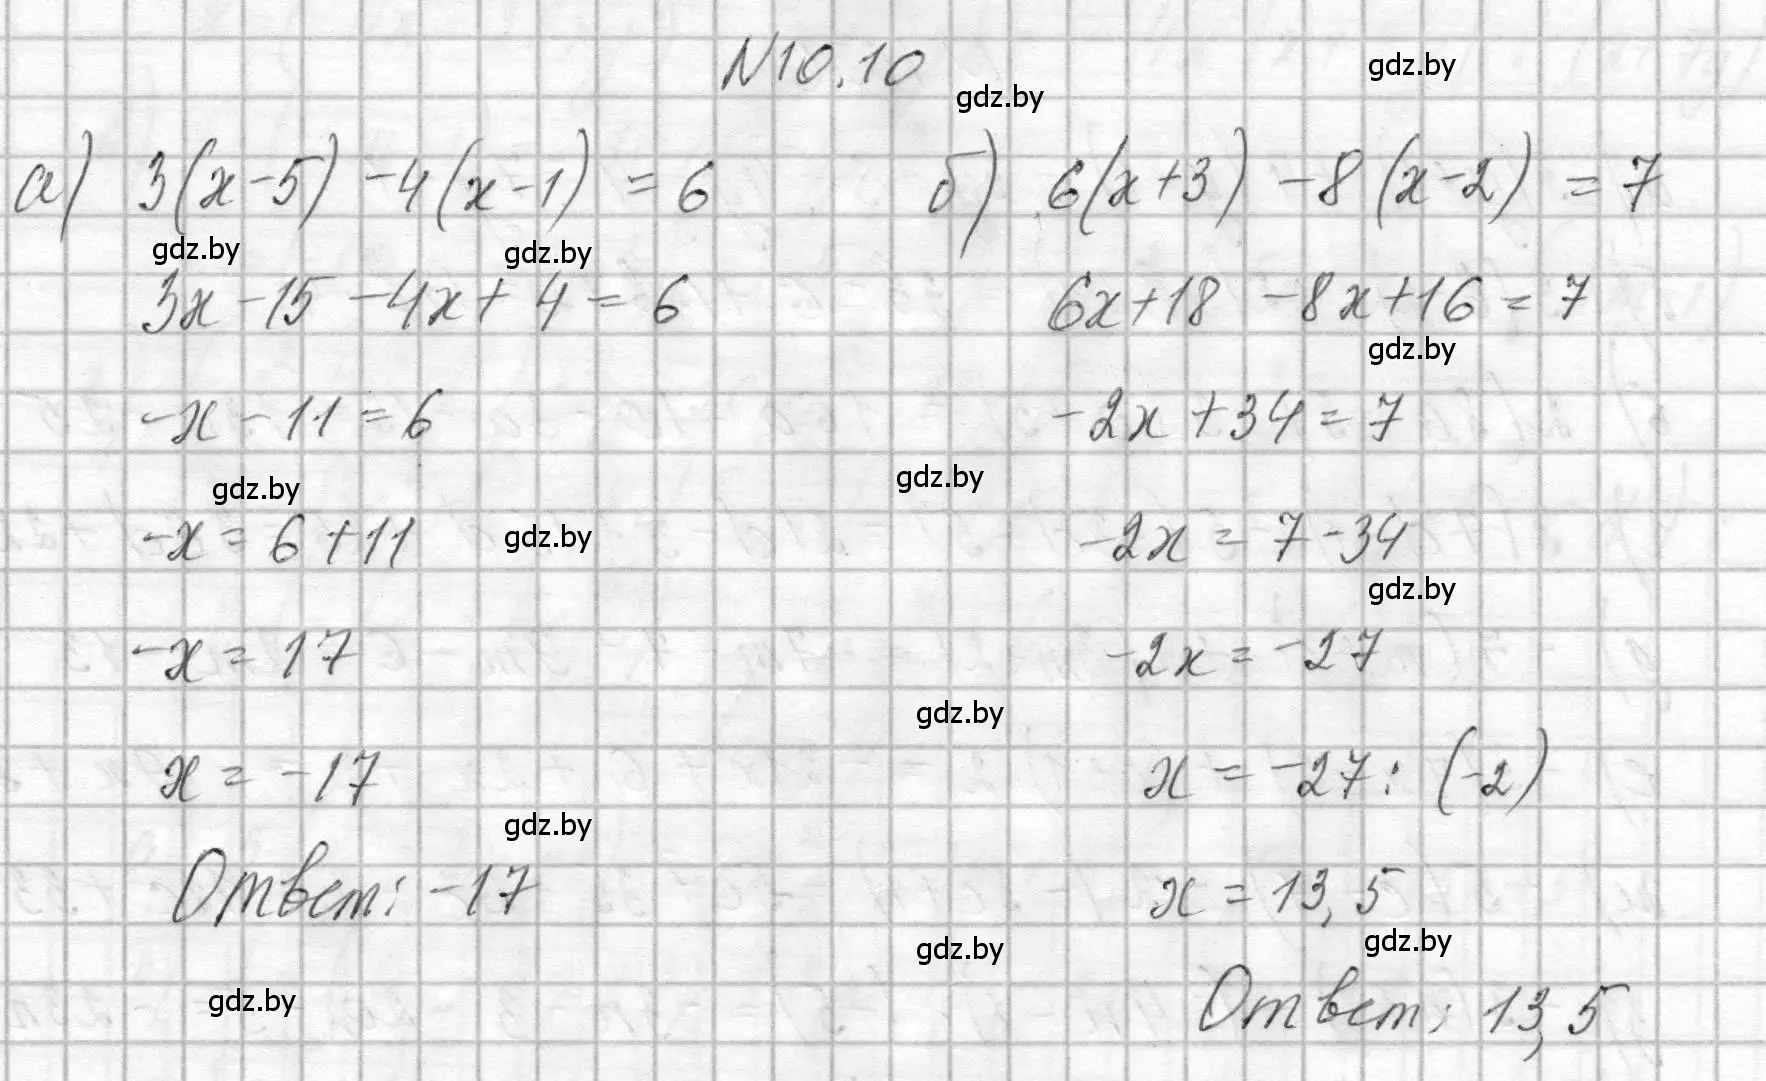 N10.10
gdz.by
gdz.by
а) 3(x-5) -4(x-1) = 6
gdz.by
gdz.by
3x-15-4x+4=6
-x-11=6
gdz.by
-x=6+11
gdz.by
-x=17
x=-17
gdz.by
Ответ: -17
gdz.by
б) 6(x+3) -8(x-2) = 7
6x+18-8x+16=7
gdz.by
-2x+34=7
gdz.by
-2x=7-34
gdz.by
-2x=-27
gdz.by
x=-27:(-2)
x=13,5
gdz.by
gdz.by
Ответ: 13,5